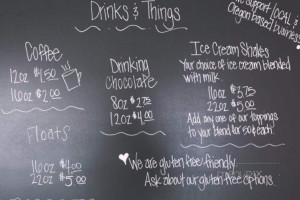 Drinks & Things
support LOCAL &
Oregon based business
Coffee
12oz $1.50
16oz $2.00
Drinking
Chocolate
8oz $2.75
12oz $4.00
Ice Cream Shakes
Your choice of ice cream blended
with milk
16oz $3.75
22oz $5.00
Add any one of our toppings
to your blend for 50¢ each
Floats
16oz $4.00
22oz $5.00
We are gluten free friendly
Ask about our gluten free options